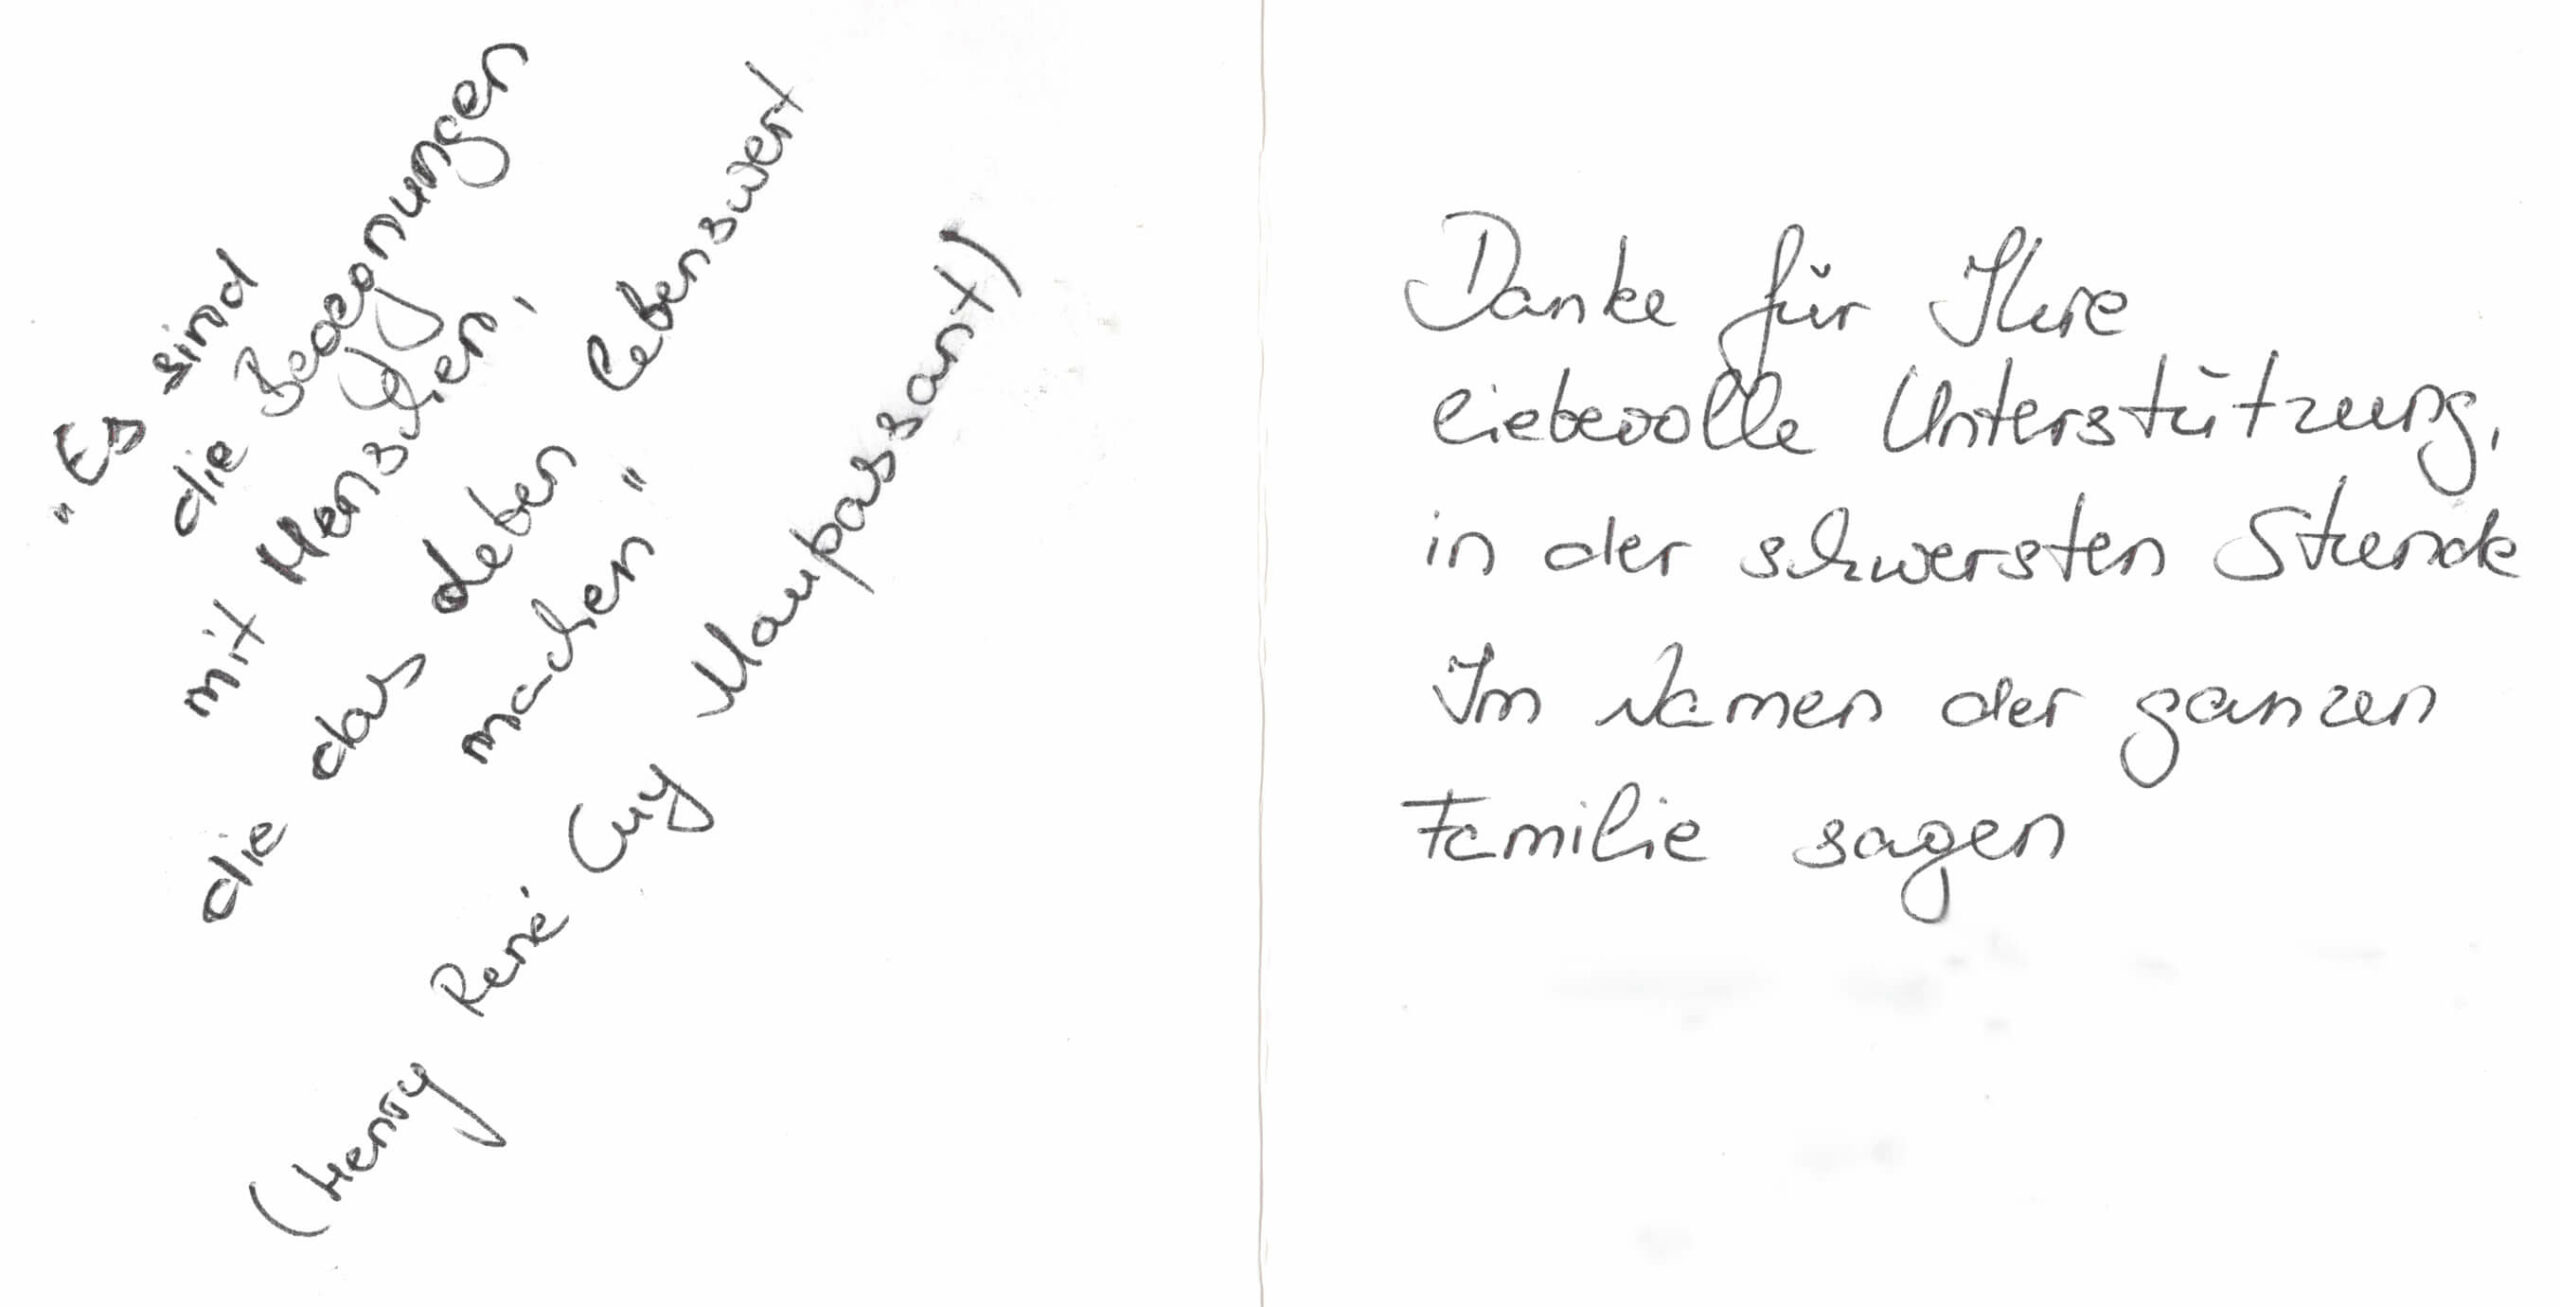 "Es sind
die Begegnungen
mit Menschen,
die das Leben lebenswert
machen"
(Henry René Guy Maupassant)
Danke für Ihre
liebevolle Unterstützung,
in der schwersten Stunde
Im Namen der ganzen
Familie sagen